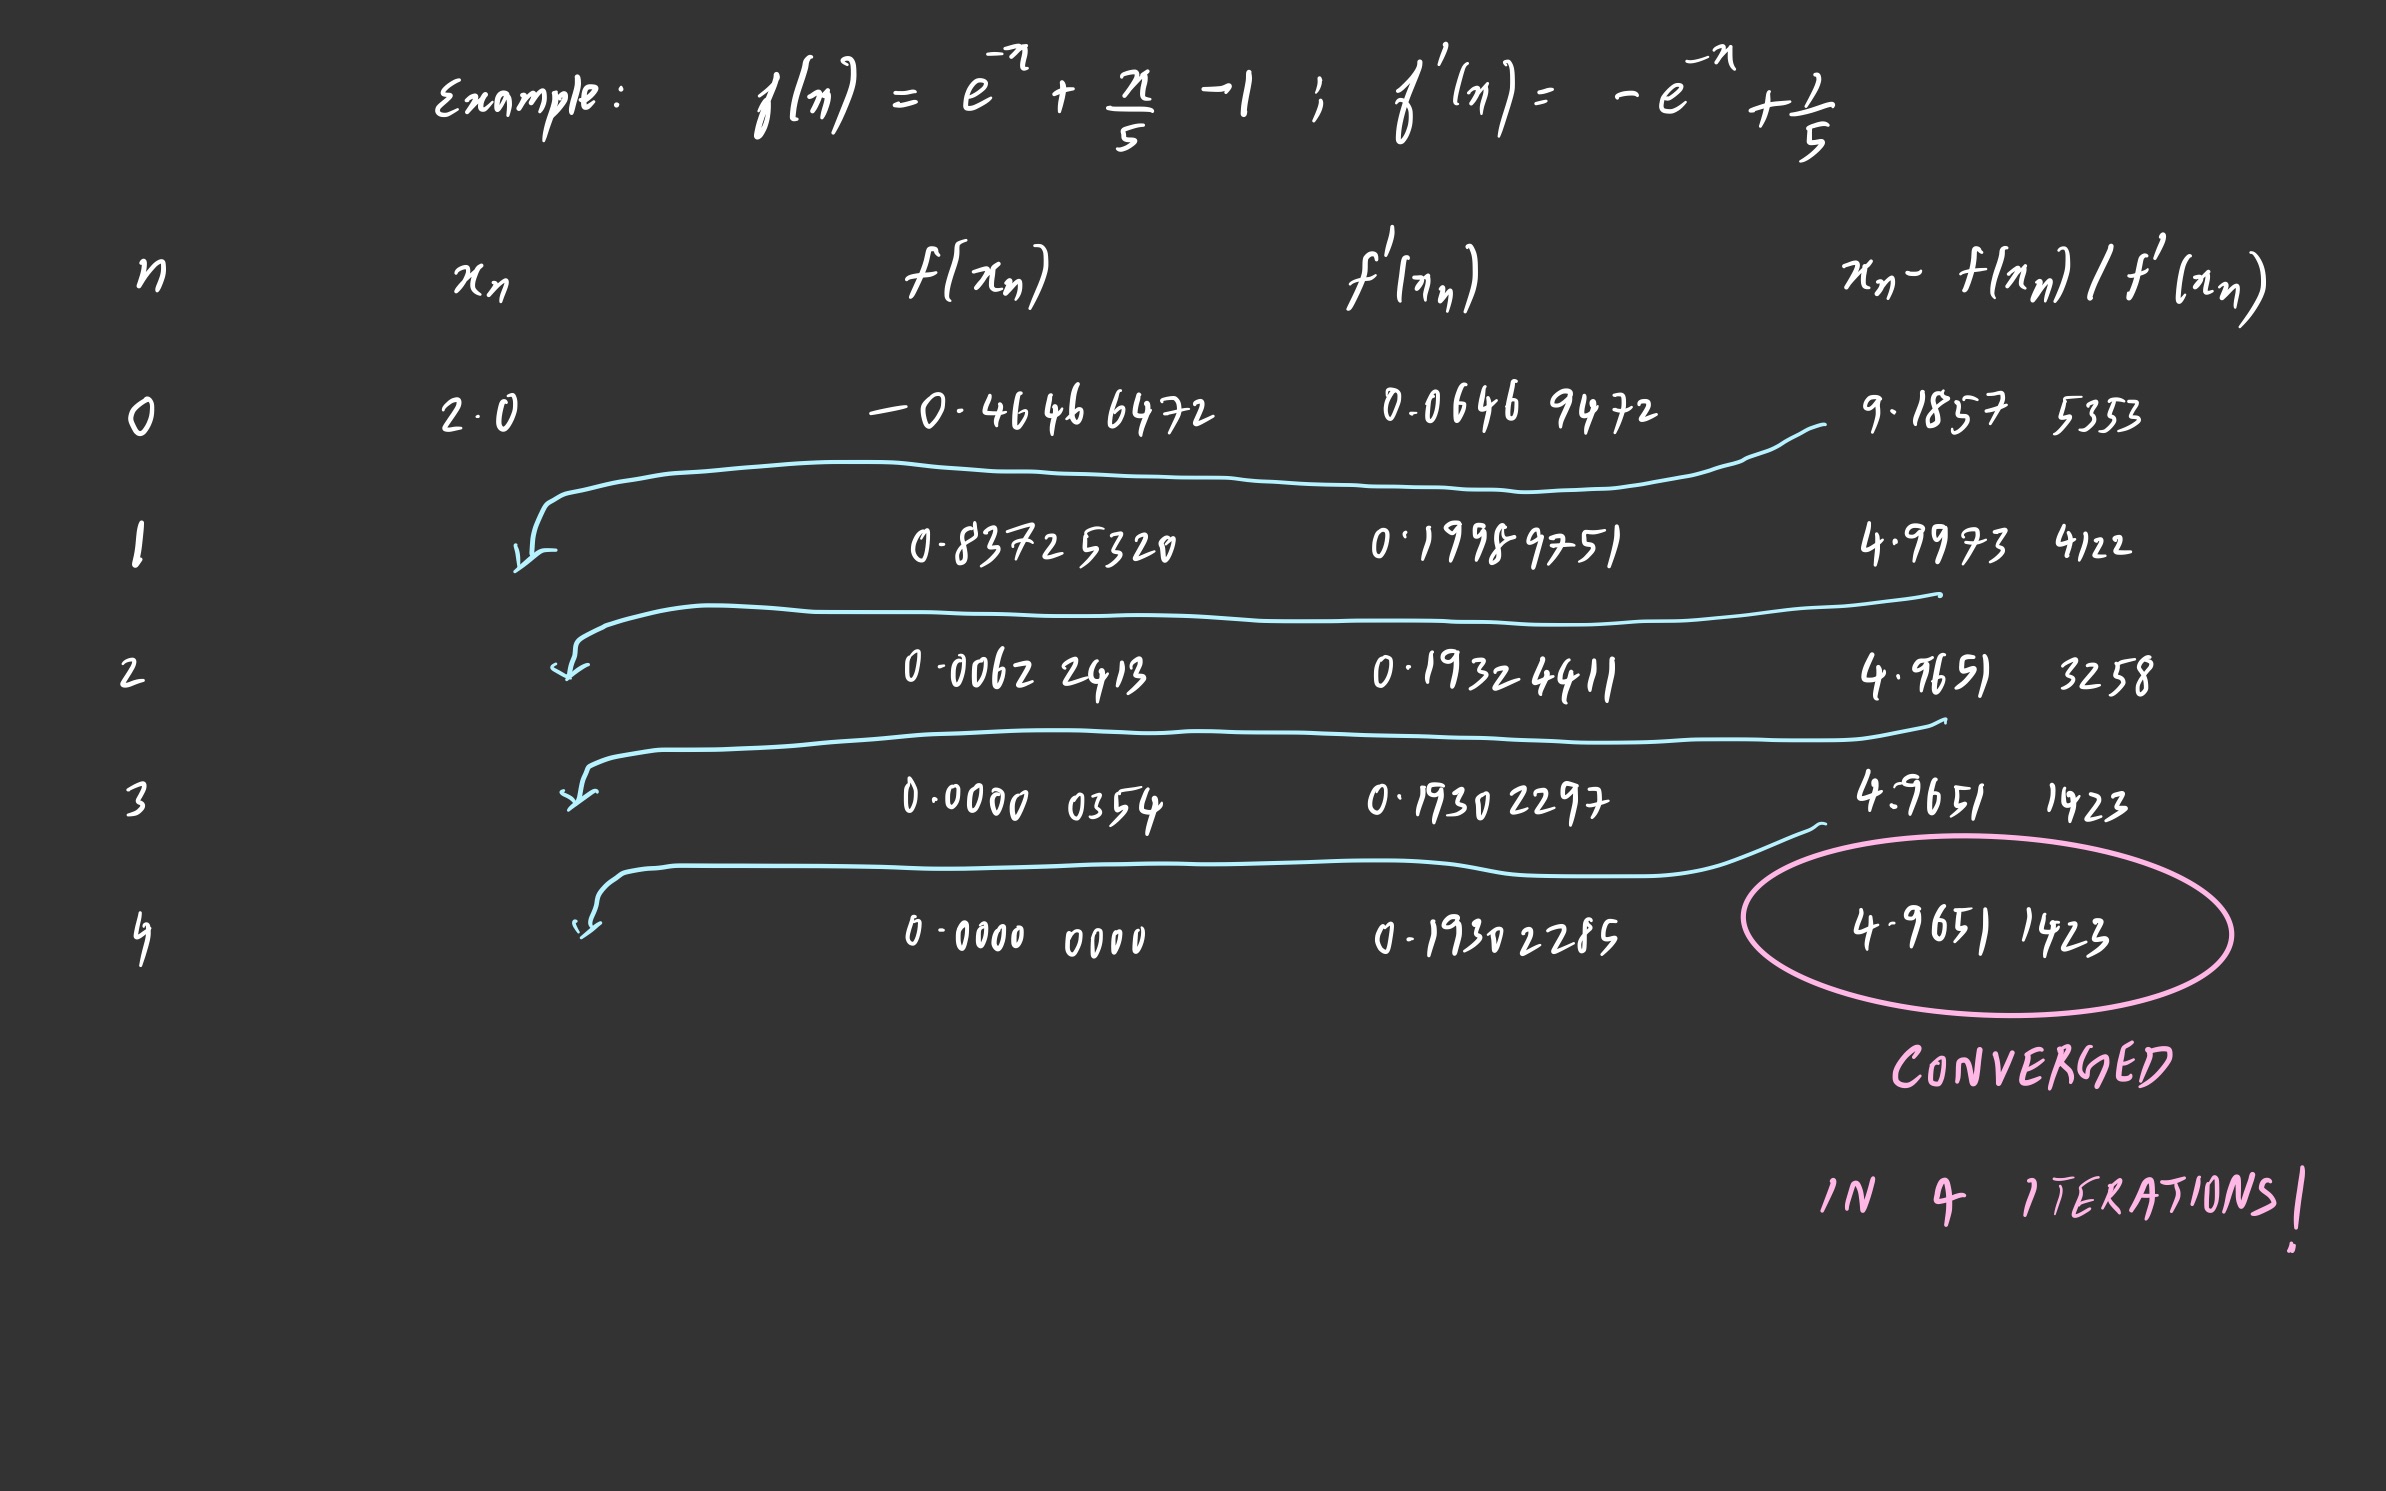 Example: f(x) = e^{-x} + x/5 - 1 ; f'(x) = - e^{-x} + 1/5
n x_n f(x_n) f'(x_n) x_n - f(x_n) / f'(x_n)
0 2.0 -0.4646 6472 0.0646 9472 9.1857 5353
1 0.8372 5320 0.1998 9751 4.9973 4122
2 0.0062 2413 0.1932 4411 4.9651 3258
3 0.0000 0354 0.1930 2297 4.9651 1423
4 0.0000 0000 0.1930 2285 4.9651 1423
CONVERGED
IN 4 ITERATIONS!